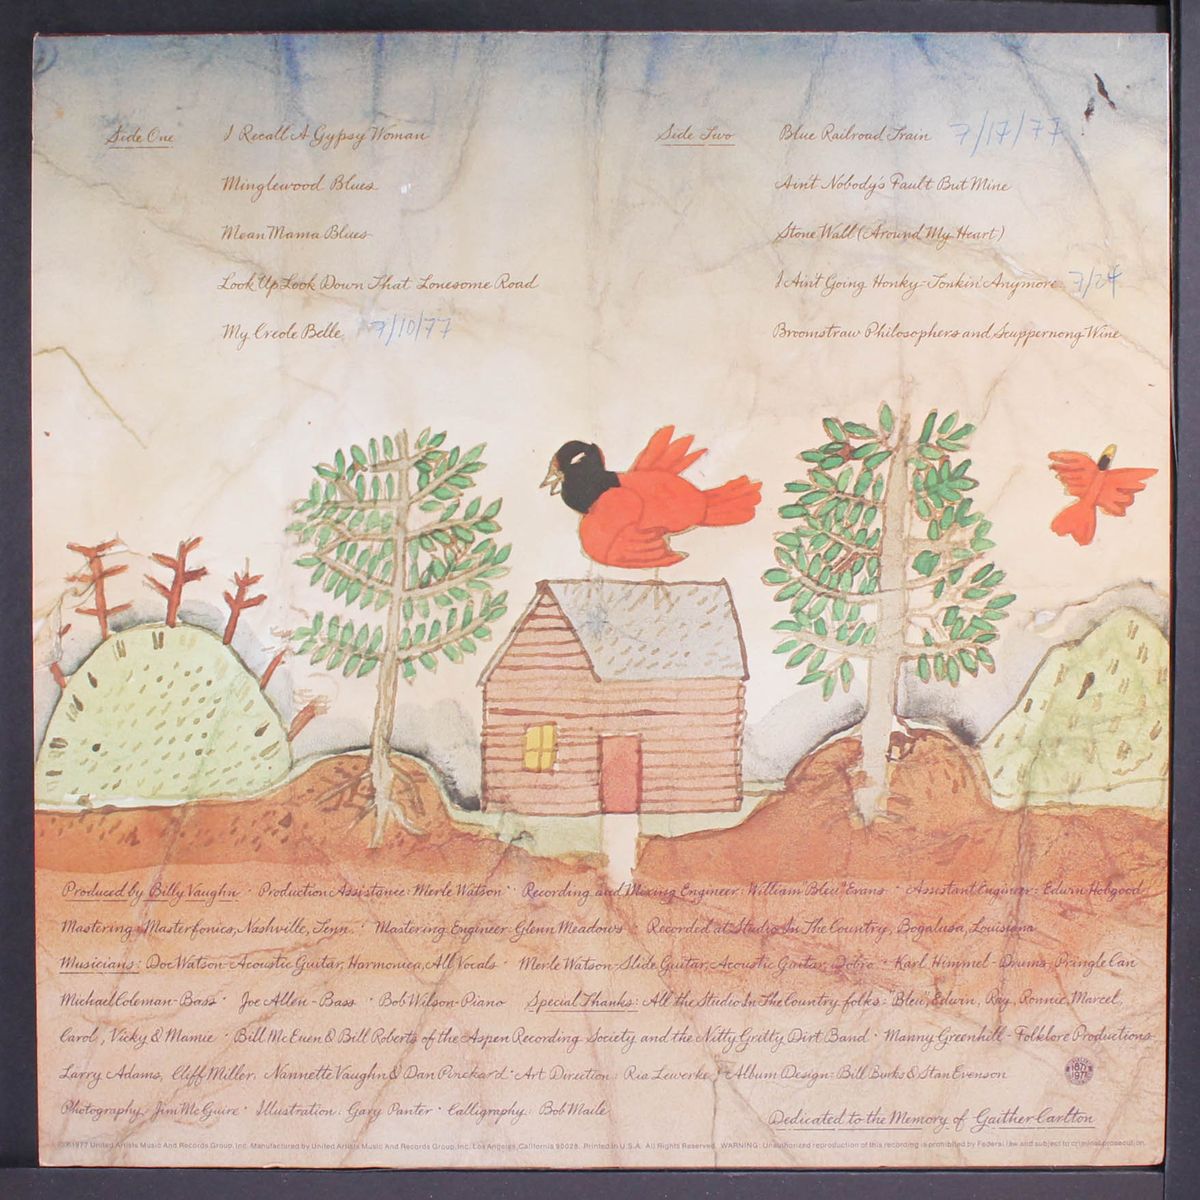 Side One
I Recall A Gypsy Woman
Minglewood Blues
Mean Mama Blues
Look Up Look Down That Lonesome Road
My Creole Belle 7/10/77
Side Two
Blue Railroad Train 7/17/77
Ain't Nobody's Fault But Mine
Stone Wall (Around My Heart)
I Ain't Going Honky-Tonkin' Anymore 7/24
Broomstraw Philosophers and Scuppernong Wine
Produced by Billy Vaughn · Production Assistance: Merle Watson · Recording and Mixing Engineer: William "Bleu" Evans · Assistant Engineer: Edwin Hobgood
Mastering: Masterfonics, Nashville, Tenn. · Mastering Engineer: Glenn Meadows · Recorded at Studio In The Country, Bogalusa, Louisiana
Musicians: Doc Watson-Acoustic Guitar, Harmonica, All Vocals · Merle Watson-Slide Guitar, Acoustic Guitar, Dobro · Karl Himmel-Drums, Pringle Can
Michael Coleman-Bass · Joe Allen-Bass · Bob Wilson-Piano Special Thanks: All the Studio In The Country folks-"Bleu", Edwin, Ray, Ronnie, Marcel,
Carol, Vicky & Mamie · Bill McEuen & Bill Roberts of the Aspen Recording Society and the Nitty Gritty Dirt Band · Manny Greenhill-Folklore Productions
Larry Adams, Cliff Miller, Nannette Vaughn & Dan · Art Direction: Ria Lewerke · Album Design-Bill Burks & Stan Evenson
Photography: Jim McGuire · Illustration: Gary Panter · Calligraphy: Bob Maile
Dedicated to the Memory of Gaither Carlton
©℗1977 United Artists Music And Records Group, Inc. Manufactured by United Artists Music And Records Group, Inc. Los Angeles, California 90028. Printed in U.S.A. All Rights Reserved. WARNING: Unauthorized reproduction of this recording is prohibited by Federal law and subject to criminal prosecution.